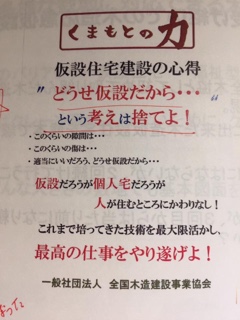 くまもとの力
仮設住宅建設の心得
"どうせ仮設だから・・・"
という考えは捨てよ！
・このくらいの隙間は・・・
・このくらいの傷は・・・
・適当にいいだろう、どうせ仮設だから・・・
仮設だろうが個人宅だろうが
人が住むところにかわりなし！
これまで培ってきた技術を最大限活かし、
最高の仕事をやり遂げよ！
一般社団法人　全国木造建設事業協会